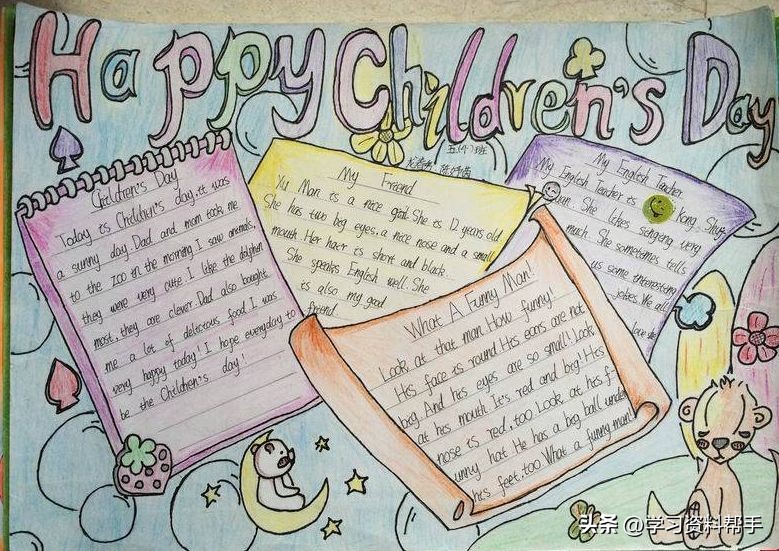 Happy Children's Day
五(4)班
Children's Day
Today is Children's day, it was
a sunny day. Dad and mom took me
to the zoo in the morning. I saw animals,
they were very cute. I like the dolphin
most, they are clever. Dad also bought
me a lot of delicious food. I was
very happy today! I hope everyday to
be the Children's day!
My Friend
Xu Man is a nice girl. She is 12 years old
She has two big eyes, a nice nose and a small
mouth. Her haer is short and black.
She speaks English well. She
is also my good
friend.
My English Teacher
My English Teacher is Kong Shu
yun. She likes singeng very
much. She sometimes tells
us some interesting
jokes. We all
love
What A Funny Man!
Look at that man. How funny!
His face is round. His ears are not
big. And his eyes are so small! Look
at his mouth. It's red and big! His
nose is red, too. Look at his f-
unny hat. He has a big ball under
his feet, too. What a funny man!
头条 @学习资料帮手